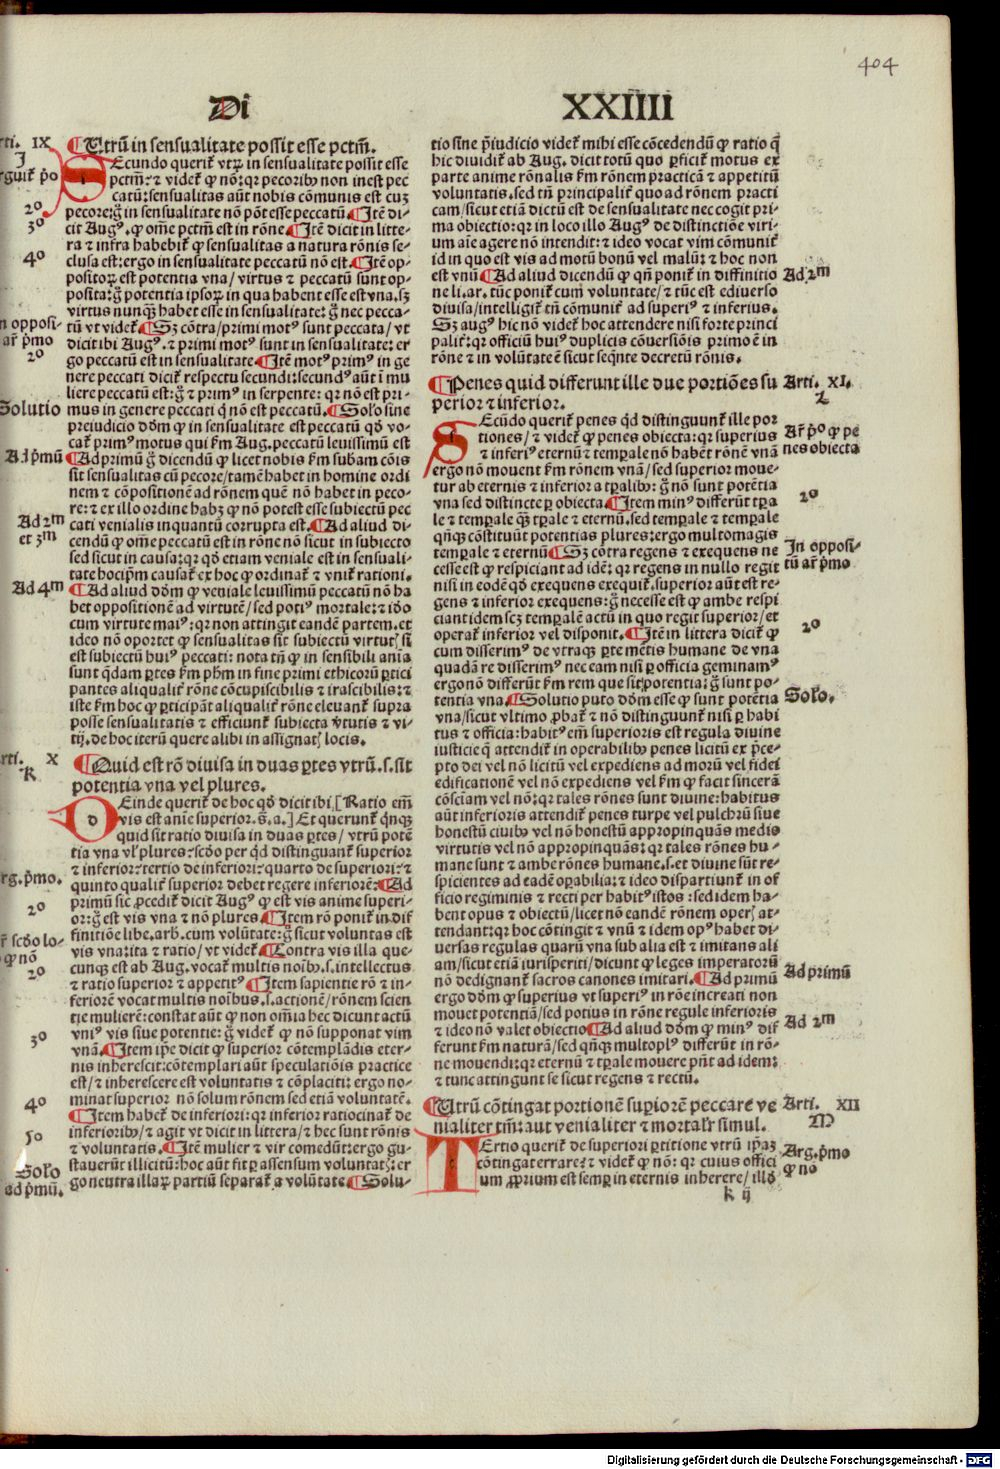 404
Di XXIIII
¶Utrū in sensualitate possit esse pctm̄.
Secundo querit᷑ vtꝝ in sensualitate possit esse
pctm̄: ⁊ videt᷑ ꝙ nō: qꝛ pecoribꝰ non inest pec
catū: sensualitas aūt nobis cōmunis est cuꝫ
pecore: g̊ in sensualitate nō pōt esse peccatū ¶Itē di-
cit Augꝰ. ꝙ om̄e pctm̄ est in rōne ¶Itē dicit in litte-
ra ⁊ infra habebit᷑ ꝙ sensualitas a natura rōnis se-
clusa est: ergo in sensualitate peccatū nō est. ¶Itē op-
positoꝝ est potentia vna/ virtus ⁊ peccatū sunt op-
posita: g̊ potentia ipsoꝝ in qua habent esse est vna. sꝫ
virtus nunqꝫ habet esse in sensualitate: g̊ nec pecca-
tū vt videt᷑. ¶Sꝫ cōtra/ primi motꝰ sunt peccata/ vt
dicit ibi Augꝰ. ⁊ primi motꝰ sunt in sensualitate: er
go peccatū est in sensualitate. ¶Itē motꝰ primꝰ in ge
nere peccati dicit᷑ respectu secundi: secundꝰ aūt ī mu
liere peccatū est: g̊ ⁊ primꝰ in serpente: qꝛ nō est pri-
mus in genere peccati q̄ nō est peccatū. ¶Solo sine
preiudicio dōm ꝙ in sensualitate est peccatū qō vo-
cat᷑ primꝰ motus qui fm Aug. peccatū leuissimū est
¶Ad primū g̊ dicendū ꝙ licet nobis fm subām cōis
sit sensualitas cū pecore/ tamē habet in homine ordi
nem ⁊ cōpositionē ad rōnem quē nō habet in peco-
re: ⁊ ex illo ordine habꝫ ꝙ nō potest esse subiectū pec
cati venialis inquantū corrupta est. ¶Ad aliud di-
cendū ꝙ om̄e peccatū est in rōne nō sicut in subiecto
sed sicut in causa: qꝛ qō etiam veniale est in sensuali-
tate hocip̄m causat᷑ ex hoc ꝙ ordinat᷑ ⁊ vnit᷑ rationi.
¶Ad aliud dōm ꝙ veniale leuissimū peccatū nō ha
bet oppositionē ad virtutē/ sed potiꝰ mortale: ⁊ iō
cum virtute maiꝰ: qꝛ non attingit eandē partem. et
ideo nō oportet ꝙ sensualitas sit subiectū virtutꝭ si
est subiectū huiꝰ peccati: nota tn̄ ꝙ in sensibili aīa
sunt q̄dam ꝑtes fm phm in fine primi ethicorū ꝑtici
pantes aliqualit᷑ rōne cōcupiscibilis ⁊ irascibilis: ⁊
iste fm hoc ꝙ ꝑticipāt aliqualit᷑ rōne eleuant᷑ supra
posse sensualitatis ⁊ efficiunt᷑ subiecta v̄tutis ⁊ vi-
tij. de hoc iterū quere alibi in assignatꝭ locis.
¶Quid est rō diuisa in duas ꝑtes vtrū. s. sit
potentia vna vel plures.
Deinde querit᷑ de hoc qō dicit ibi. [Ratio em̄
vis est anīe superior. ⁊c̄. a.] Et querunt᷑ qnqꝫ
quid sit ratio diuisa in duas ꝑtes/ vtrū potē
tia vna vl' plures: scōo per q̄d distinguant᷑ superior
⁊ inferior: tertio de inferiori: quarto de superiori: ⁊
quinto qualit᷑ superior debet regere inferiorē: ¶Ad
primū sic ꝓcedit᷑ dicit Augꝰ ꝙ est vis anime superi-
or: g̊ est vis vna ⁊ nō plures. ¶Itē rōm ponit᷑ in dif
finitiōe libe. arb. cum volūtate: g̊ sicut voluntas est
vis vna: ita ⁊ ratio/ vt videt᷑. ¶Contra vis illa que-
cunqꝫ est ab Aug. vocat᷑ multis noībꝰ. s. intellectus
⁊ ratio superior ⁊ appetitꝰ ¶Itē sapientie rō ⁊ in-
feriorē vocat multis noībus. s. actionē/ rōnem scien
tie mulierē: constat aūt ꝙ non om̄ia hec dicunt actū
vniꝰ vis siue potentie: g̊ videt᷑ ꝙ nō supponat vim
vnā. ¶Itē ip̄e dicit ꝙ superior cōtemplādis eter-
nis inherescit: cōtemplari aūt speculatiōis practice
est/ ⁊ inherescere est voluntatis ⁊ cōplaciti: ergo no-
minat superior nō solum rōnem sed etiā voluntatē.
¶Itē habet᷑ de inferiori: qꝛ inferior ratiocinat᷑ de
inferioribꝰ/ ⁊ agit vt dicit in littera/ ⁊ hec sunt rōnis
⁊ voluntatis. ¶Itē mulier ⁊ vir comedūt: ergo gu-
stauerūt illicitū: hoc aūt fit ꝑ assensum voluntatꝭ: er
go neutra illaꝝ partiū separat᷑ a volūtate. ¶Solu-
tio sine p̄iudicio videt᷑ mihi esse cōcedendū ꝙ ratio q̄
hic diuidit᷑ ab Aug. dicit totū quo ꝑficit᷑ motus ex
parte anime rōnalis fm rōnem practicā ⁊ appetitū
voluntatis. sed tn̄ principalit᷑ quo ad rōnem practi
cam/ sicut etiā dictū est de sensualitate nec cogit pri-
ma obiectio: qꝛ in loco illo Augꝰ de distinctiōe viri-
um aīe agere nō intendit: ⁊ ideo vocat vim cōmunit᷑
id in quo est vis ad motū bonū vel malū: ⁊ hoc non
est vnū ¶Ad aliud dicendū ꝙ qn̄ ponit᷑ in diffinitio
ne li. ar. tūc ponit᷑ cum voluntate/ ⁊ tūc est ediuerso
diuisa/ intelligit᷑ tn̄ cōmunit᷑ ad superiꝰ ⁊ inferius.
Sꝫ augꝰ hic nō videt᷑ hoc attendere nisi forte princi
palit᷑: qꝛ officiū huiꝰ duplicis cōuersiōis primo ē in
rōne ⁊ in volūtate ē sicut seqn̄te decretū rōnis.
¶Penes quid differunt ille due portiōes su
perior ⁊ inferior.
Secūdo querit᷑ penes qd distinguunt᷑ ille por
tiones/ ⁊ videt᷑ ꝙ penes obiecta: qꝛ superius
⁊ inferiꝰ eternū ⁊ temꝑale nō habēt rōnē vnā
ergo nō mouent fm rōnem vnā/ sed superior moue-
tur ab eternis ⁊ inferior a tꝑalibꝰ: g̊ nō sunt potētia
vna sed distincte ꝑ obiecta. ¶Item minꝰ differūt tꝑa
le ⁊ temꝑale qꝫ tꝑale ⁊ eternū. sed temꝑale ⁊ temꝑale
qn̄qꝫ cōstituūt potentias plures: ergo multomagis
temꝑale ⁊ eternū ¶Sꝫ cōtra regens ⁊ exequens ne
cesse est ꝙ respiciant ad idē: qꝛ regens in nullo regit
nisi in eodē qō exequens exequit᷑. superior aūt est re-
gens ⁊ inferior exequens: g̊ necesse est ꝙ ambe respi
ciant idem scꝫ temꝑalē actū in quo regit superior/ et
operat᷑ inferior vel disponit. ¶Itē in littera dicit᷑ ꝙ
cum disserimꝰ de vtraqꝫ ꝑte mētis humane de vna
quadā re disserimꝰ nec eam nisi ꝑ officia geminamꝰ
ergo nō differūt fm rem que sit potentia: g̊ sunt po-
tentia vna. ¶Solutio puto dōm esse ꝙ sunt potētia
vna/ sicut vltimo ꝓbat᷑ ⁊ nō distinguunt᷑ nisi ꝑ habi
tus ⁊ officia: habitꝰ em̄ superioris est regula diuine
iusticie q̄ attendit᷑ in operabilibꝰ penes licitū ex p̄ce-
pto dei vel nō licitū vel expediens ad morū vel fidei
edificationē vel nō expediens vel fm ꝙ facit sincerā
cōsciam vel nō: qꝛ tales rōnes sunt diuine: habitus
aūt inferioris attendit᷑ penes turpe vel pulchrū siue
honestū ciuibꝰ vel nō honestū appropinquās medis
virtutis vel nō appropinquās: qꝛ tales rōnes hu-
mane sunt ⁊ ambe rōnes humane. s. et diuine sūt re-
spicientes ad eadē oꝑabilia: ⁊ ideo dispartiunt᷑ in of
ficio regiminis ⁊ recti per habitꝰ istos: sed idem ha-
bent opus ⁊ obiectū/ licet nō eandē rōnem operꝭ at-
tendant: qꝛ hoc cōtingit ⁊ vnū ⁊ idem opꝰ habet di-
uersas regulas quarū vna sub alia est ⁊ imitans ali
am/ sicut etiā iurisperiti/ dicunt ꝙ leges imperatorū
nō dedignant᷑ sacros canones imitari. ¶Ad primū
ergo dōm ꝙ superius vt superiꝰ in rōe increati non
mouet potentiā/ sed potius in rōne regule inferioris
⁊ ideo nō valet obiectio ¶Ad aliud dōm ꝙ minꝰ dif
ferunt fm naturā/ sed qn̄qꝫ multoplꝰ differūt in rō-
ne mouendi: qꝛ eternū ⁊ tꝑale mouere pn̄t ad idem:
⁊ tunc attingunt se sicut regens ⁊ rectū.
¶Utrū cōtingat portionē supiorē peccare ve
nialiter tm̄: aut venialiter ⁊ mortalr̄ simul.
Tertio querit᷑ de superiori ꝑtitione vtrū ip̄aꝫ
cōtingat errare: ⁊ videt᷑ ꝙ nō: qꝛ cuius offici
um ꝓprium est semꝑ in eternis inherere/ illō
k ij
IX
J
2o
3o
4o
2o
Solutio
Ad primū
Ad 2m
et 3m
Ad 4m
X
K
2o
2o
3o
4o
5o
Solo
ad p̄mū.
Ad 2m
Arti. XI.
L
Ar̄ p̄o ꝙ pe
nes obiecta
2o
In opposi-
tū ar̄ p̄mo
2o
Solo.
Ad primū
Ad 2m
Arti. XII
M
Arg. p̄mo
ꝙ no
Digitalisierung gefördert durch die Deutsche Forschungsgemeinschaft - DFG